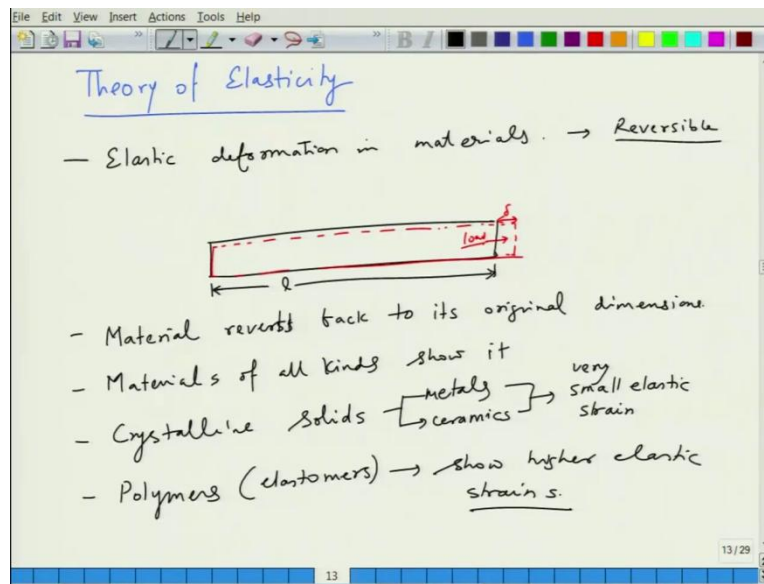 File Edit View Insert Actions Tools Help
B I
Theory of Elasticity
— Elastic deformation in materials. → Reversible
δ
load
l
- Material reverts back to its original dimensions.
- Materials of all kinds show it
- Crystalline solids metals ceramics → very small elastic strain
- Polymers (elastomers) → show higher elastic
strains.
13/29
13